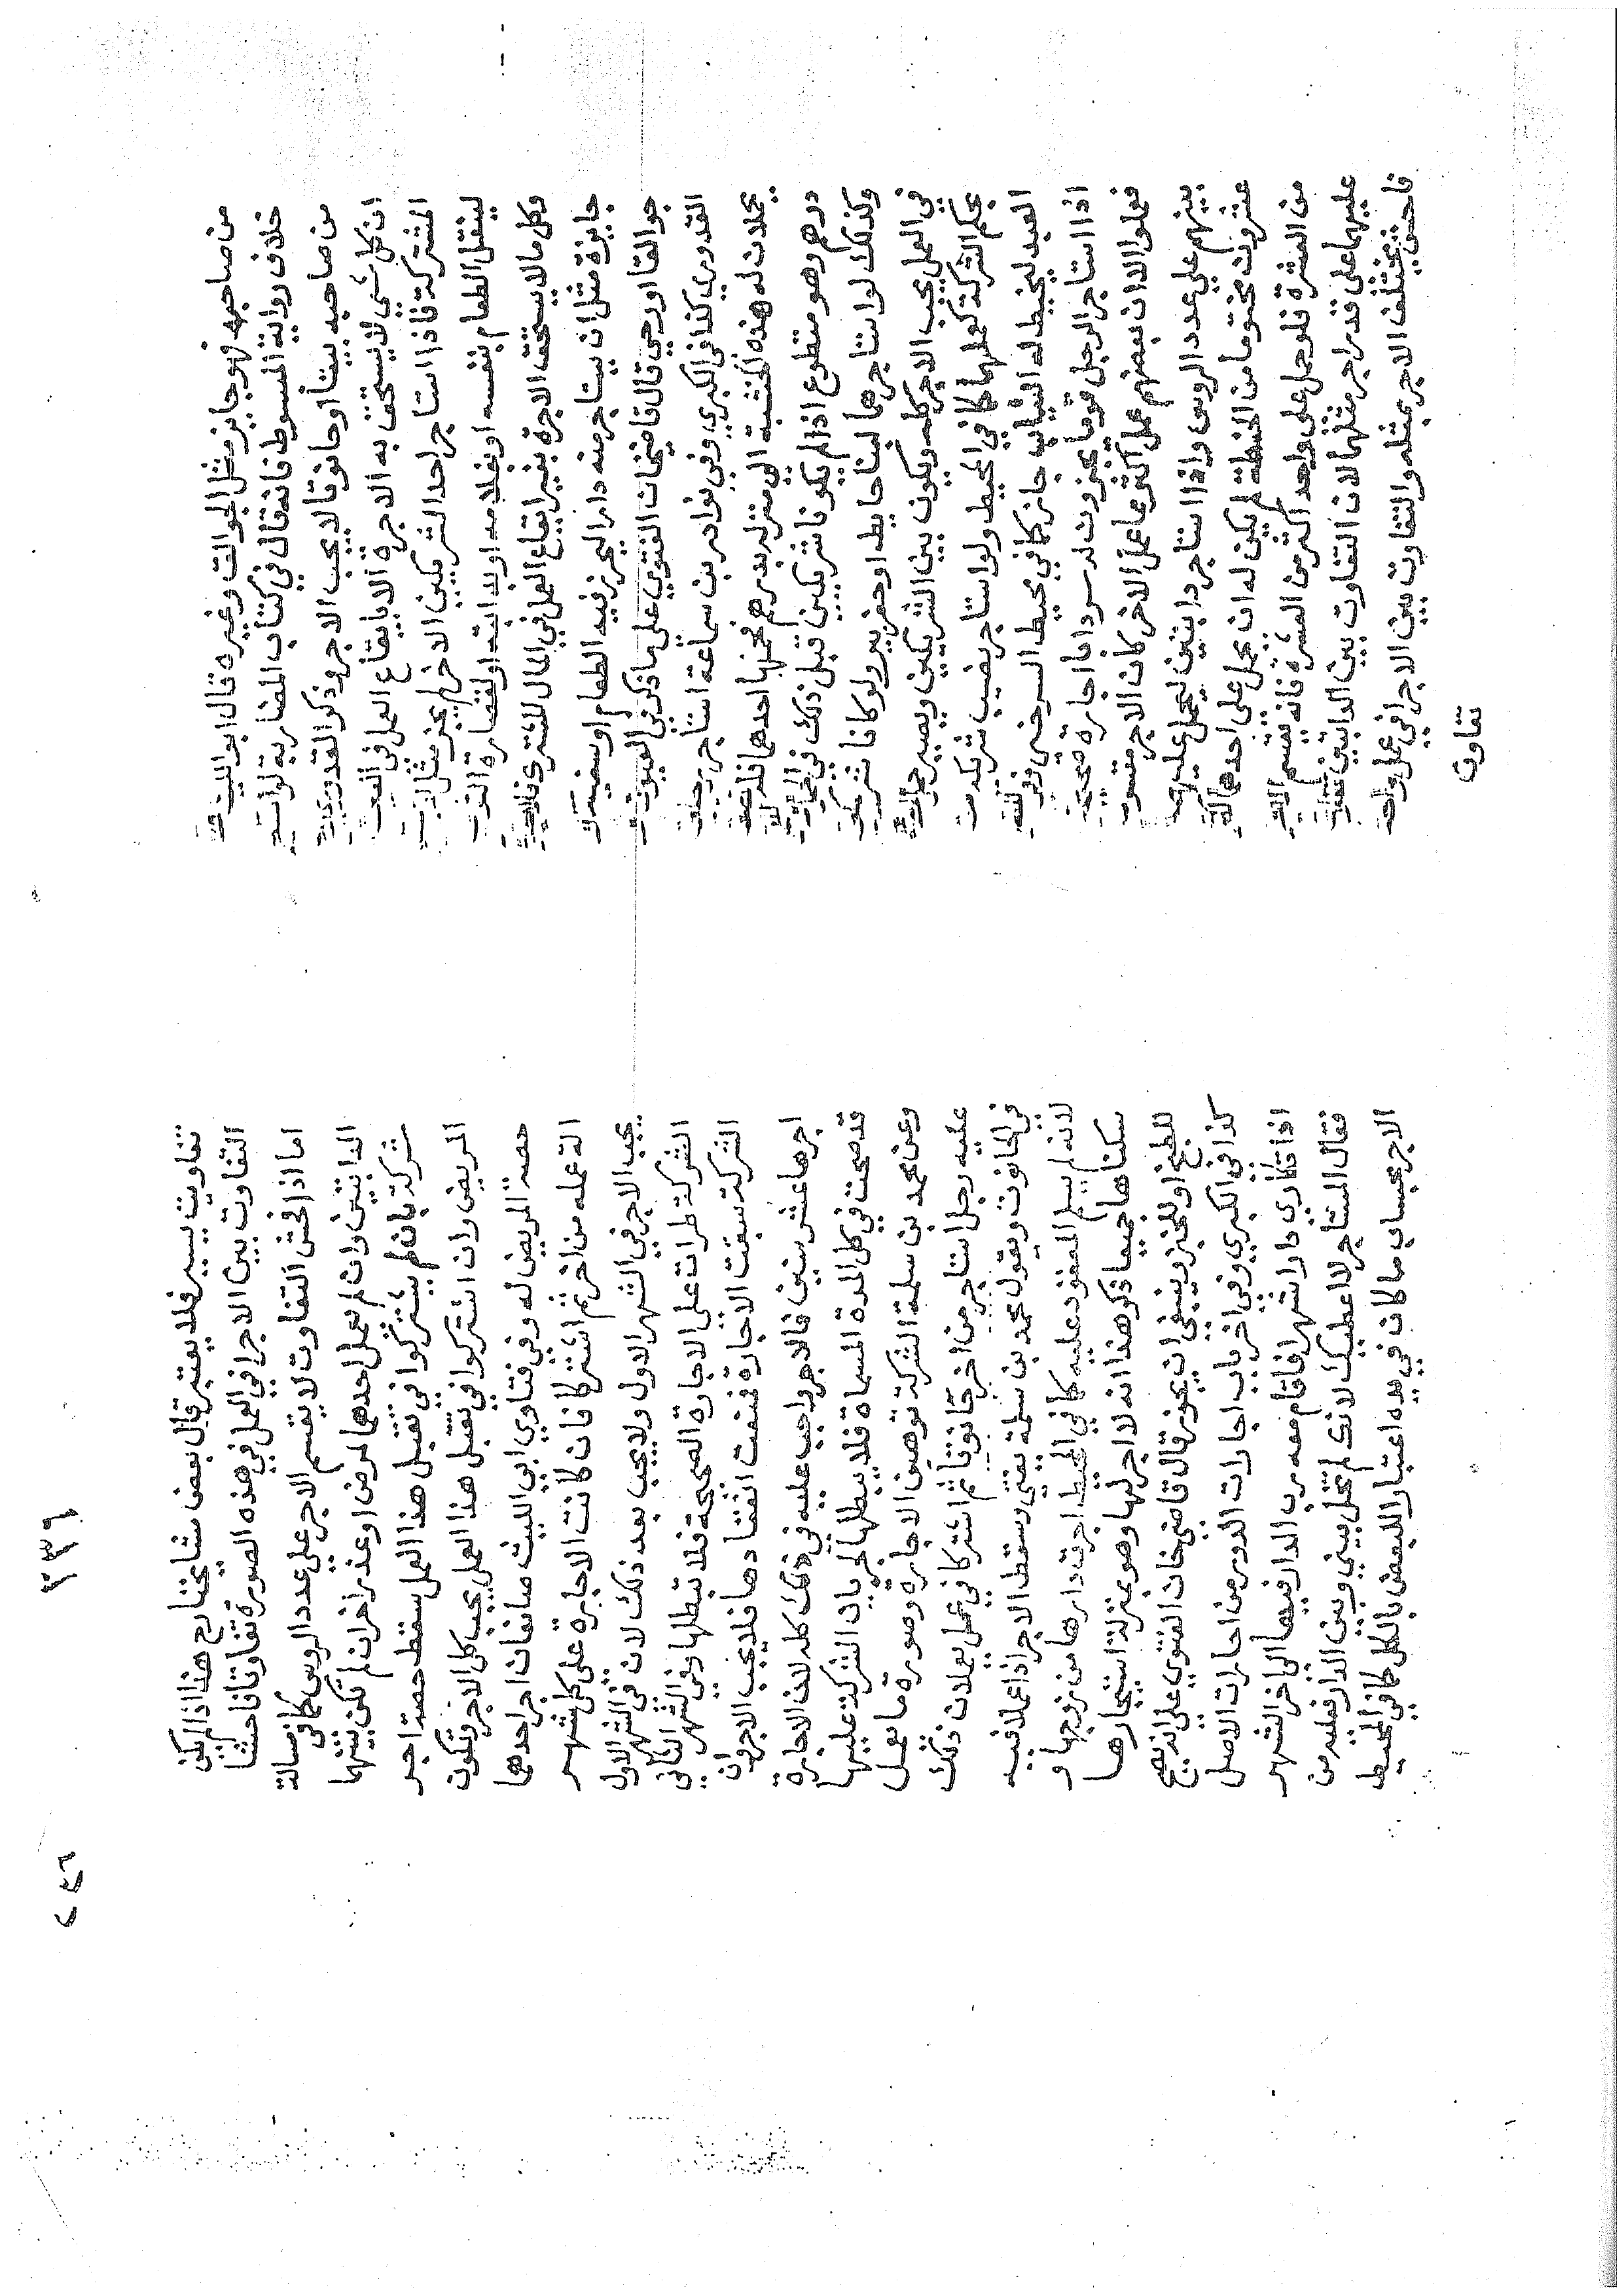 من صاحبه فهو جايز مثل الجوالق وغيره قال ابو الليث
خلاف رواية المبسوط فانه قال في كتاب المضاربة لو استا
من صاحبه بيتا او حانوتا لا يجب الاجر وذكر القدوري
ان كل شي لا يستحق به الاجرة الا بايقاع العمل في العين
المشتركة فاذا استاجر احد الشريكين الاخر لم يجز مثل ان
لينقل الطعام بنفسه او بغلامه او بدابته او لقصارة الثوب
وكل مالا يستحق الاجرة بغير ايقاع العمل في المال المشترك
جايزة مثل ان يستاجر منه دارا ليحرز فيه الطعام او سفينة او
جوالقا او رحي قال قاضيخان الفتوي على ما ذكر في العيون و
القدوري كذا في الكبري وفي نوادر بن سماعة استاجر رجلين
يحملان له هذه الخشبة الي منزله بدرهم فحملها احدهما فله نصف
درهم وهو متطوع اذا لم يكونا شريكين قبل ذلك في الحمل
وكذلك لو استاجرهما لبنا حايط او حفر بير ولو كانا شريكين
في العمل يجب الاجر كله ويكون بين الشريكين ويصير عمل
بحكم الشركة كعملهما كما في المحيط ولو استاجر نصيب شريكه من
العبد ليخيط له الثياب جاز كما في محيط السرخسي وفي
اذا استاجر الرجل قوما يحفرون له سردابا اجارة صحيحة
فعملوا الا ان بعضهم عمل اكثر مما عمل الاخر كان الاجر مقسوما
بينهم علي عدد الروس واذا استاجر دابتين ليحمل عليهما
عشرون مختوما من الحنطة لم يكن له ان يحمل على احدهما اكثر
من العشرة فلو حمل على واحد اكثر من العشرة فانه يقسم الاجر
عليهما على قدر اجر مثلهما لان التفاوت بين الدابتين
فاحش يختلف الاجر بمثله والتفاوت بين الاجرا في عمل واحد
تفاوت
٣٣٩
٢٤٦
تفاوت يسير فلا يعتبر قال بعض مشايخنا رح هذا اذا لم يكن
التفاوت بين الاجرا في العمل في هذه الصورة تفاوتا فاحشا
اما اذا فحش التفاوت لا يقسم الاجر علي عدد الروس كما في مسالة
الدابتين وان لم يعمل احدهما لمرض او عذر اخر ان لم تكن بينهما
شركة بان لم يشتركوا في تقبل هذا العمل سقط حصة اجر
المريض وان اشتركوا في تقبل هذا العمل يجب كل الاجر وتكون
حصة المريض له وفي فتاوي ابي الليث صانعان اجر احدهما
الة عمله من اخر ثم اشتركا فان كانت الاجارة على كل شهر
يجب الاجر في الشهر الاول ولا يجب بعد ذلك لان في الشهر الاول
الشركة طرات على الاجارة الصحيحة فلا تبطلها وفي الشهر الثاني
الشركة سبقت الاجارة فمنعت انعقادها فلا يجب الاجر وان
اجرها عشر سنين فالاجر واجب عليه في ذلك كله لان الاجارة
قد صحت في كل المدة المسماة فلا يبطلها جريان الشركة عليها
وعن محمد بن سلمة الشركة توهن الاجارة وصورة ما يعمل
عليه رجل استاجر من اخر حانوتا ثم اشتركا في عمل يعملان ذلك
في الحانوت ويقول محمد بن سلمة يفتي وسقط الاجر اذا عملا فيه
لانه لم يسلم المعقود عليه كما في المحيط اجرت دارها من زوجها و
سكناها جميعا ذكر هذا انه لا اجر لها وهو بمنزلة استيجارها
للطبخ او للخبز وينبغي ان يجوز قال قاضي خان الفتوي على انه يصح
كذا في الكبري وفي اخر باب اجارات الدور من اجارات الاصل
اذا تكاري دارا شهرا فاقام معه رب الدار فيها الي اخر الشهر
فقال المستاجر لا اعطيك لانك لم تخل بيني وبين الدار فعليه من
الاجر بحساب ما كان في يده اعتبارا للبعض بالكل كما في المحيط